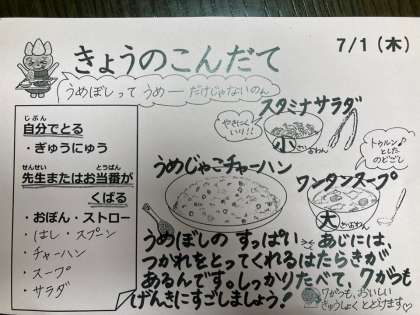 きょうのこんだて
7/1(木)
うめぼしって うめー だけじゃないのん
自分でとる
じぶん
・ぎゅうにゅう
先生またはお当番が
せんせい とうばん
くばる
・おぼん・ストロー
・はし・スプーン
・チャーハン
・スープ
・サラダ
スタミナサラダ
やきにく
いり!!
小
さいおわん
うめじゃこチャーハン
トゥルン♪
とした
のどごし
ワンタンスープ
大
うめぼしの すっぱい あじには、
つかれをとってくれるはたらきが
あるんです。しっかりたべて、7がつも
げんきにすごしましょう!
7がつも、おいしい
きゅうしょく とどけます♡